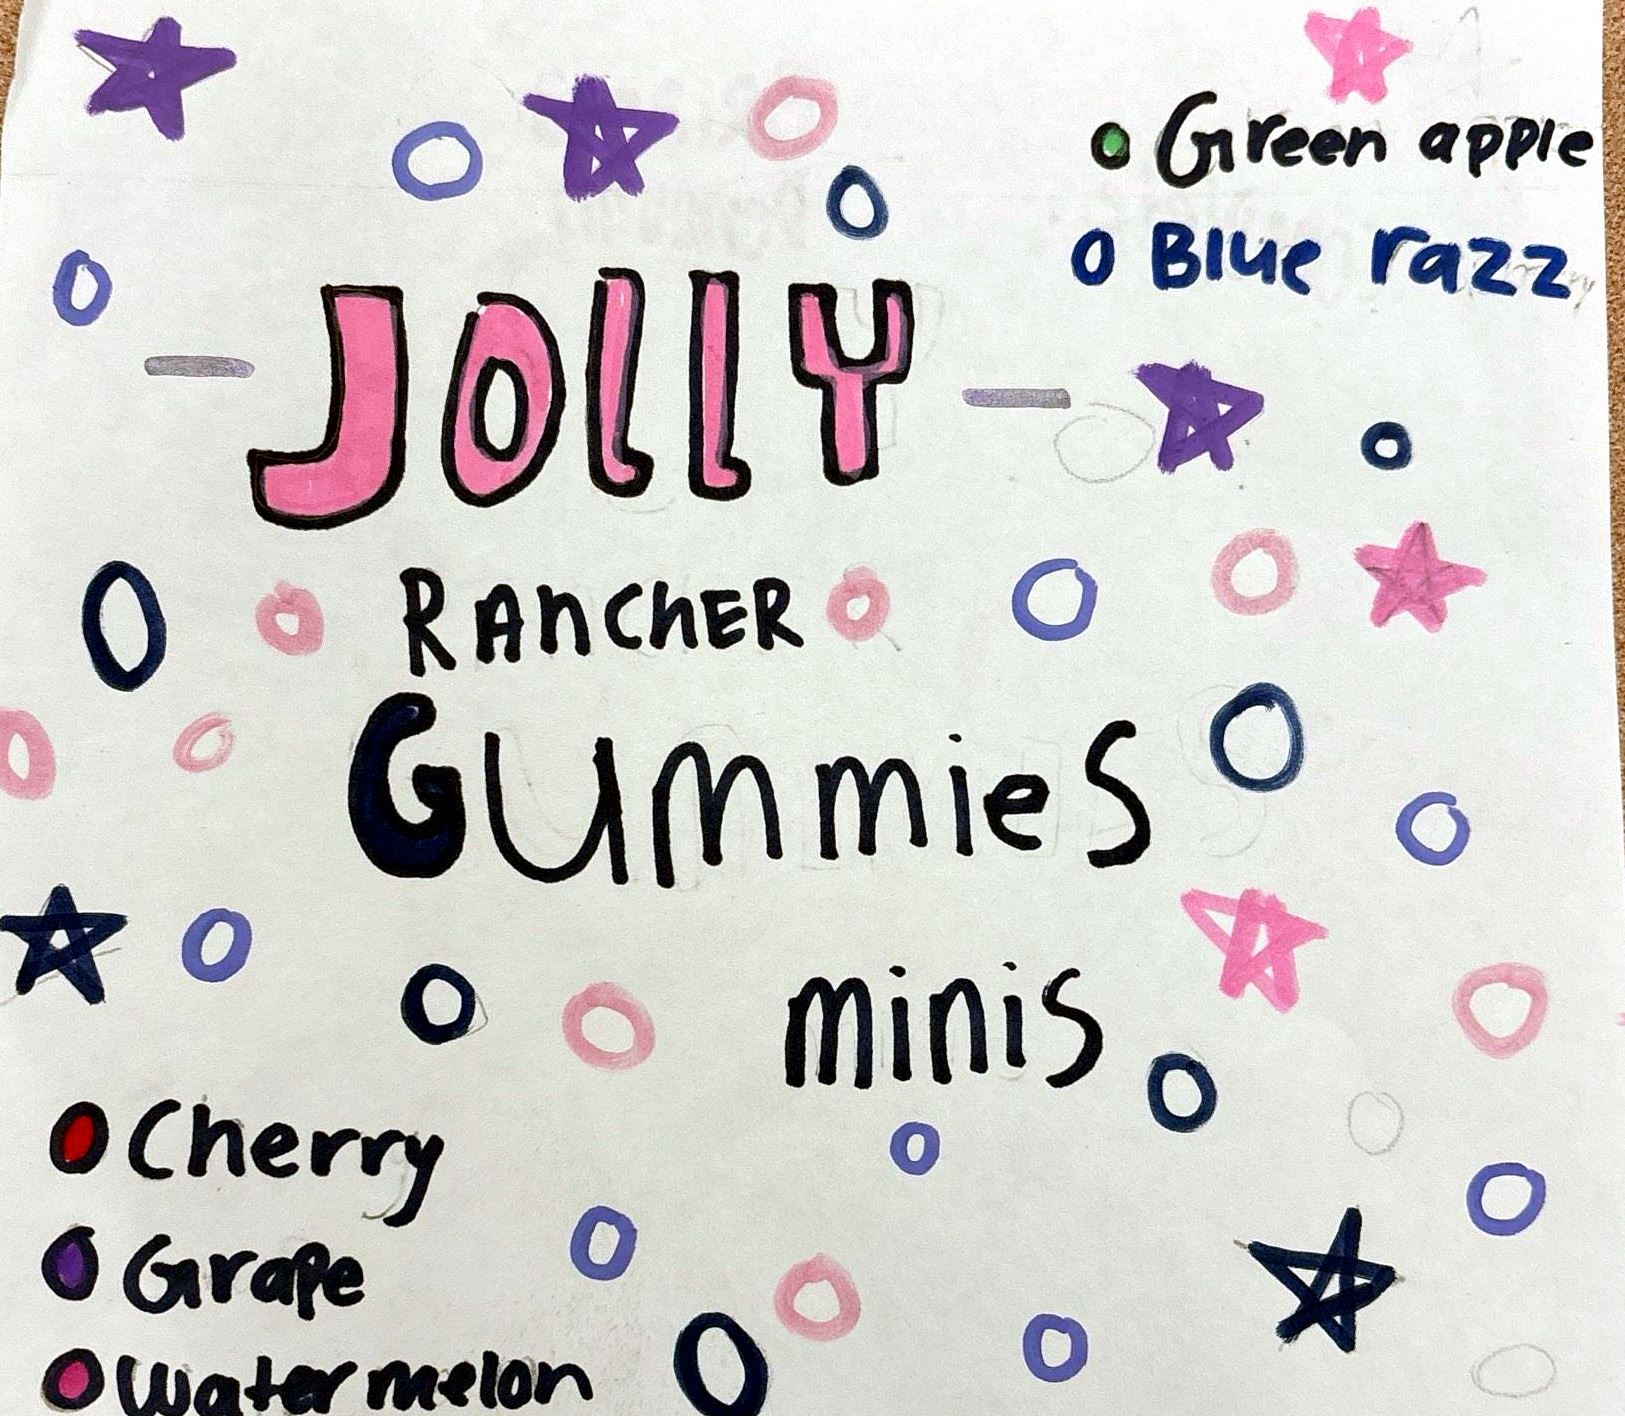 Green apple
Blue razz
JOllY
RAnChER
GummieS
minis
Cherry
Grape
Watermelon